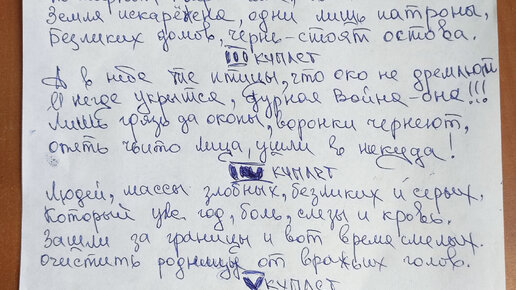 Земля искарёжена, одни лишь патроны,
Безликих домов, чернь-стоят остова.
III КУПЛЕТ
А в небе те птицы, что око не дремлют
И негде укрытся, дурная война-она!!!
Лишь грязь да окопы, воронки чернеют,
опять чьито лица, ушли в некуда!
IV КУПЛЕТ
Людей, массы злобных, безликих и серых.
Который уже год, боль, слезы и кровь.
Зашли за границы и вот время смелых.
Очистить родницу от вражьих голов.
V КУПЛЕТ